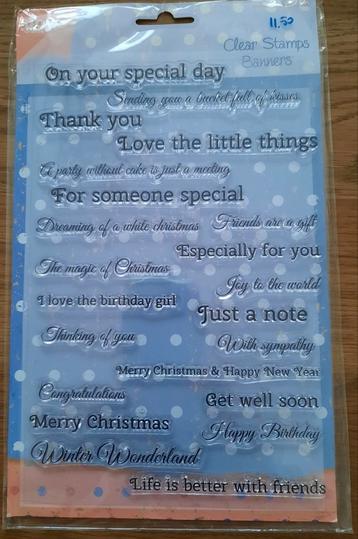 11.50
Clear Stamps
Banners
On your special day
Sending you a bucket full of kisses
Thank you
Love the little things
A party without cake is just a meeting
For someone special
Dreaming of a white christmas
Friends are a gift
Especially for you
The magic of Christmas
Joy to the world
I love the birthday girl
Just a note
Thinking of you
With sympathy
Merry Christmas & Happy New Year
Congratulations
Get well soon
Merry Christmas
Happy Birthday
Winter Wonderland
Life is better with friends